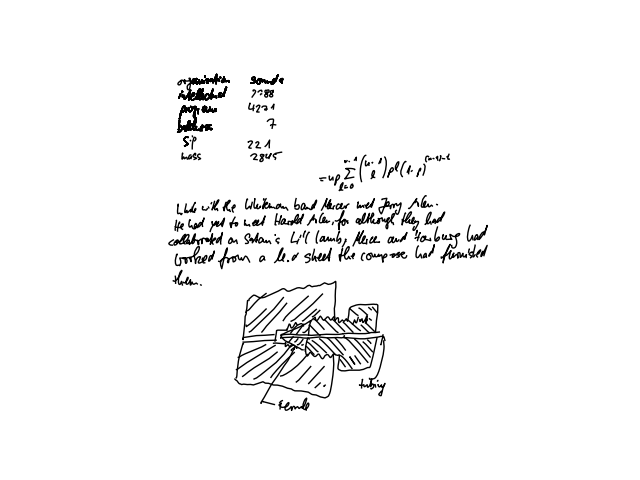 organisation sounds
intellectual 7788
programs 4271
7
sip 221
mass 2845
= np \sum_{l=0}^{n-1} \binom{n-1}{l} p^l (1-p)^{(n-1)-l}
While with the Whiteman band Mercer met Jerry Arlen.
He had yet to meet Harold Arlen, for although they had
collaborated on Satan's Li'l Lamb, Mercer and Harburg had
worked from a lead sheet the composer had furnished
them.
nut
tubing
ferrule